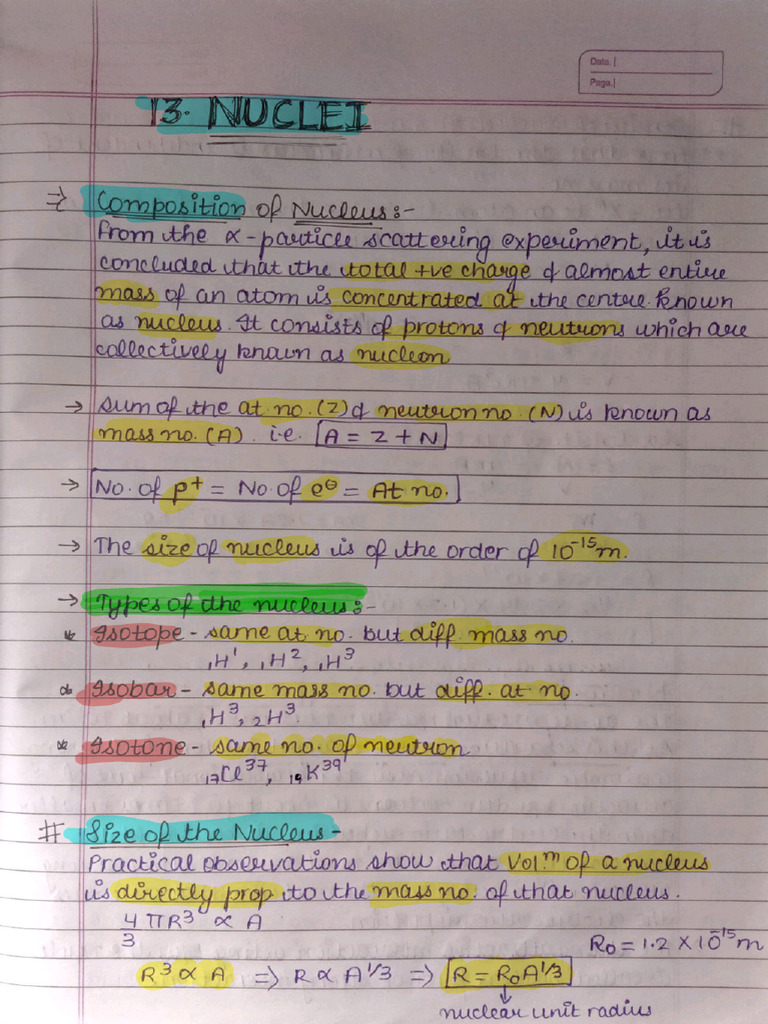 Date.
Page.
13. NUCLEI
⇒ Composition of Nucleus:-
From the α-particle scattering experiment, it is
concluded that the total +ve charge & almost entire
mass of an atom is concentrated at the centre known
as nucleus. It consists of protons & neutrons which are
collectively known as nucleon
→ Sum of the at. no. (Z) & neutron no. (N) is known as
mass no. (A). i.e. A = Z + N
→ No. of p⁺ = No. of e⊖ = At no.
→ The size of nucleus is of the order of 10⁻¹⁵ m.
→ Types of the nucleus:-
* Isotope - same at no. but diff mass no.
₁H¹, ₁H², ₁H³
* Isobar - same mass no. but diff. at no.
₁H³, ₂H³.
* Isotone - same no. of neutron
₁₇Cl³⁷, ₁₉K³⁹
# Size of the Nucleus -
Practical observations show that volᵐ of a nucleus
is directly prop to the mass no. of that nucleus.
4/3 πR³ ∝ A
R₀ = 1.2 × 10⁻¹⁵ m
R³ ∝ A ⇒ R ∝ A^1/3 ⇒ R = R₀A^1/3
nuclear unit radius